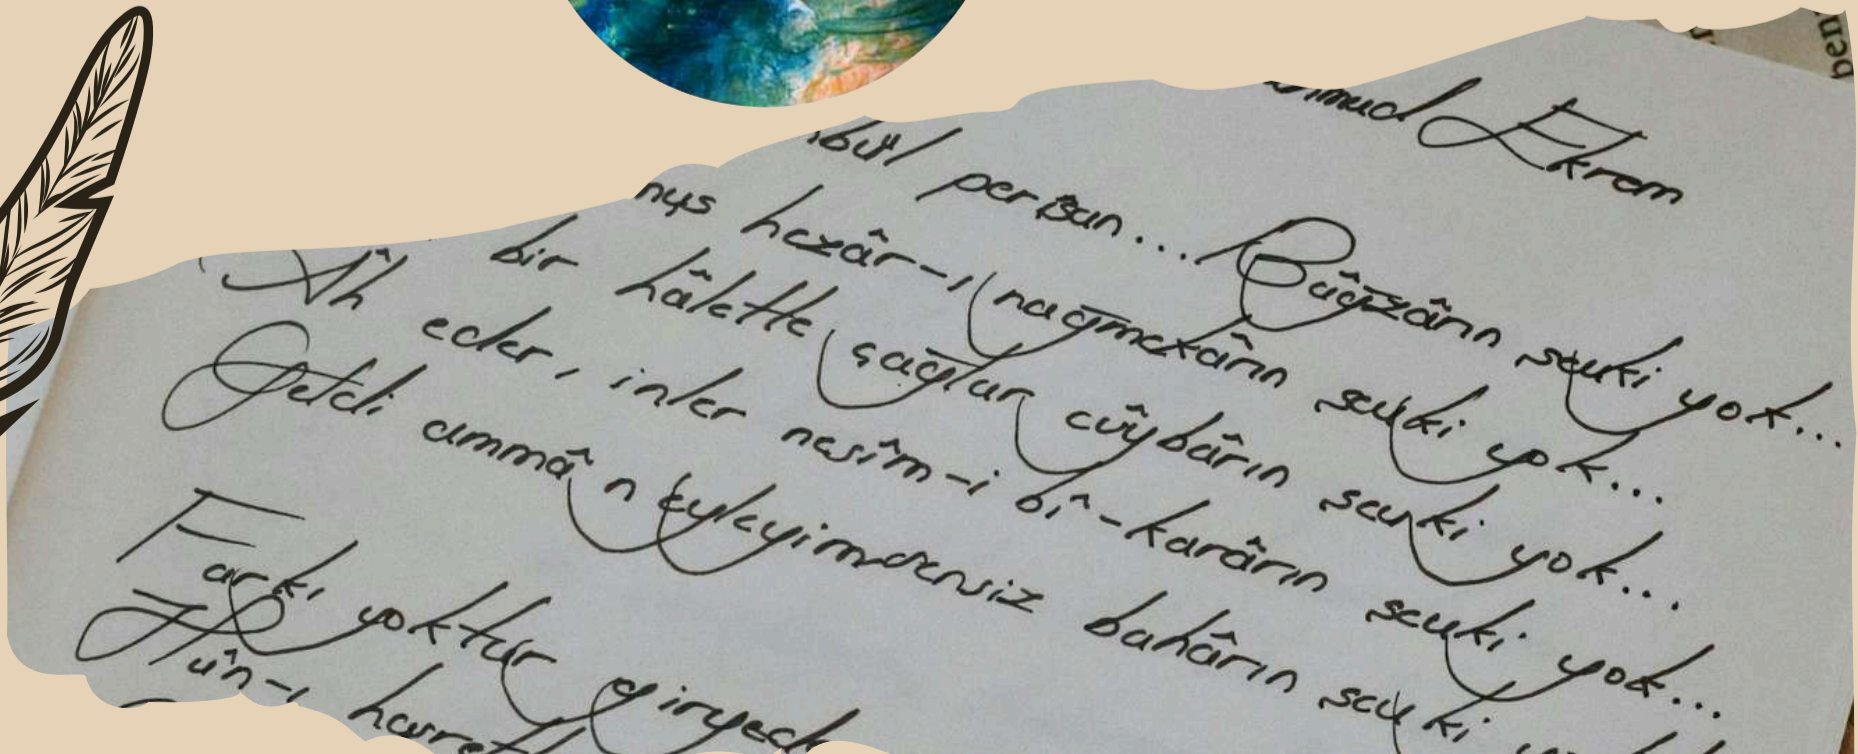 Ekrem
perîşan... Bâğzârın şevki yok...
hezâr-ı nağmekârın şevki yok...
bir hâlette çağlar cûybârın şevki yok...
Âh eder, inler nesîm-i bî-karârın şevki yok...
Geldi ammâ n'eyleyim sensiz bahârın şevki
Farkı yoktur
Hûn-ı
ben